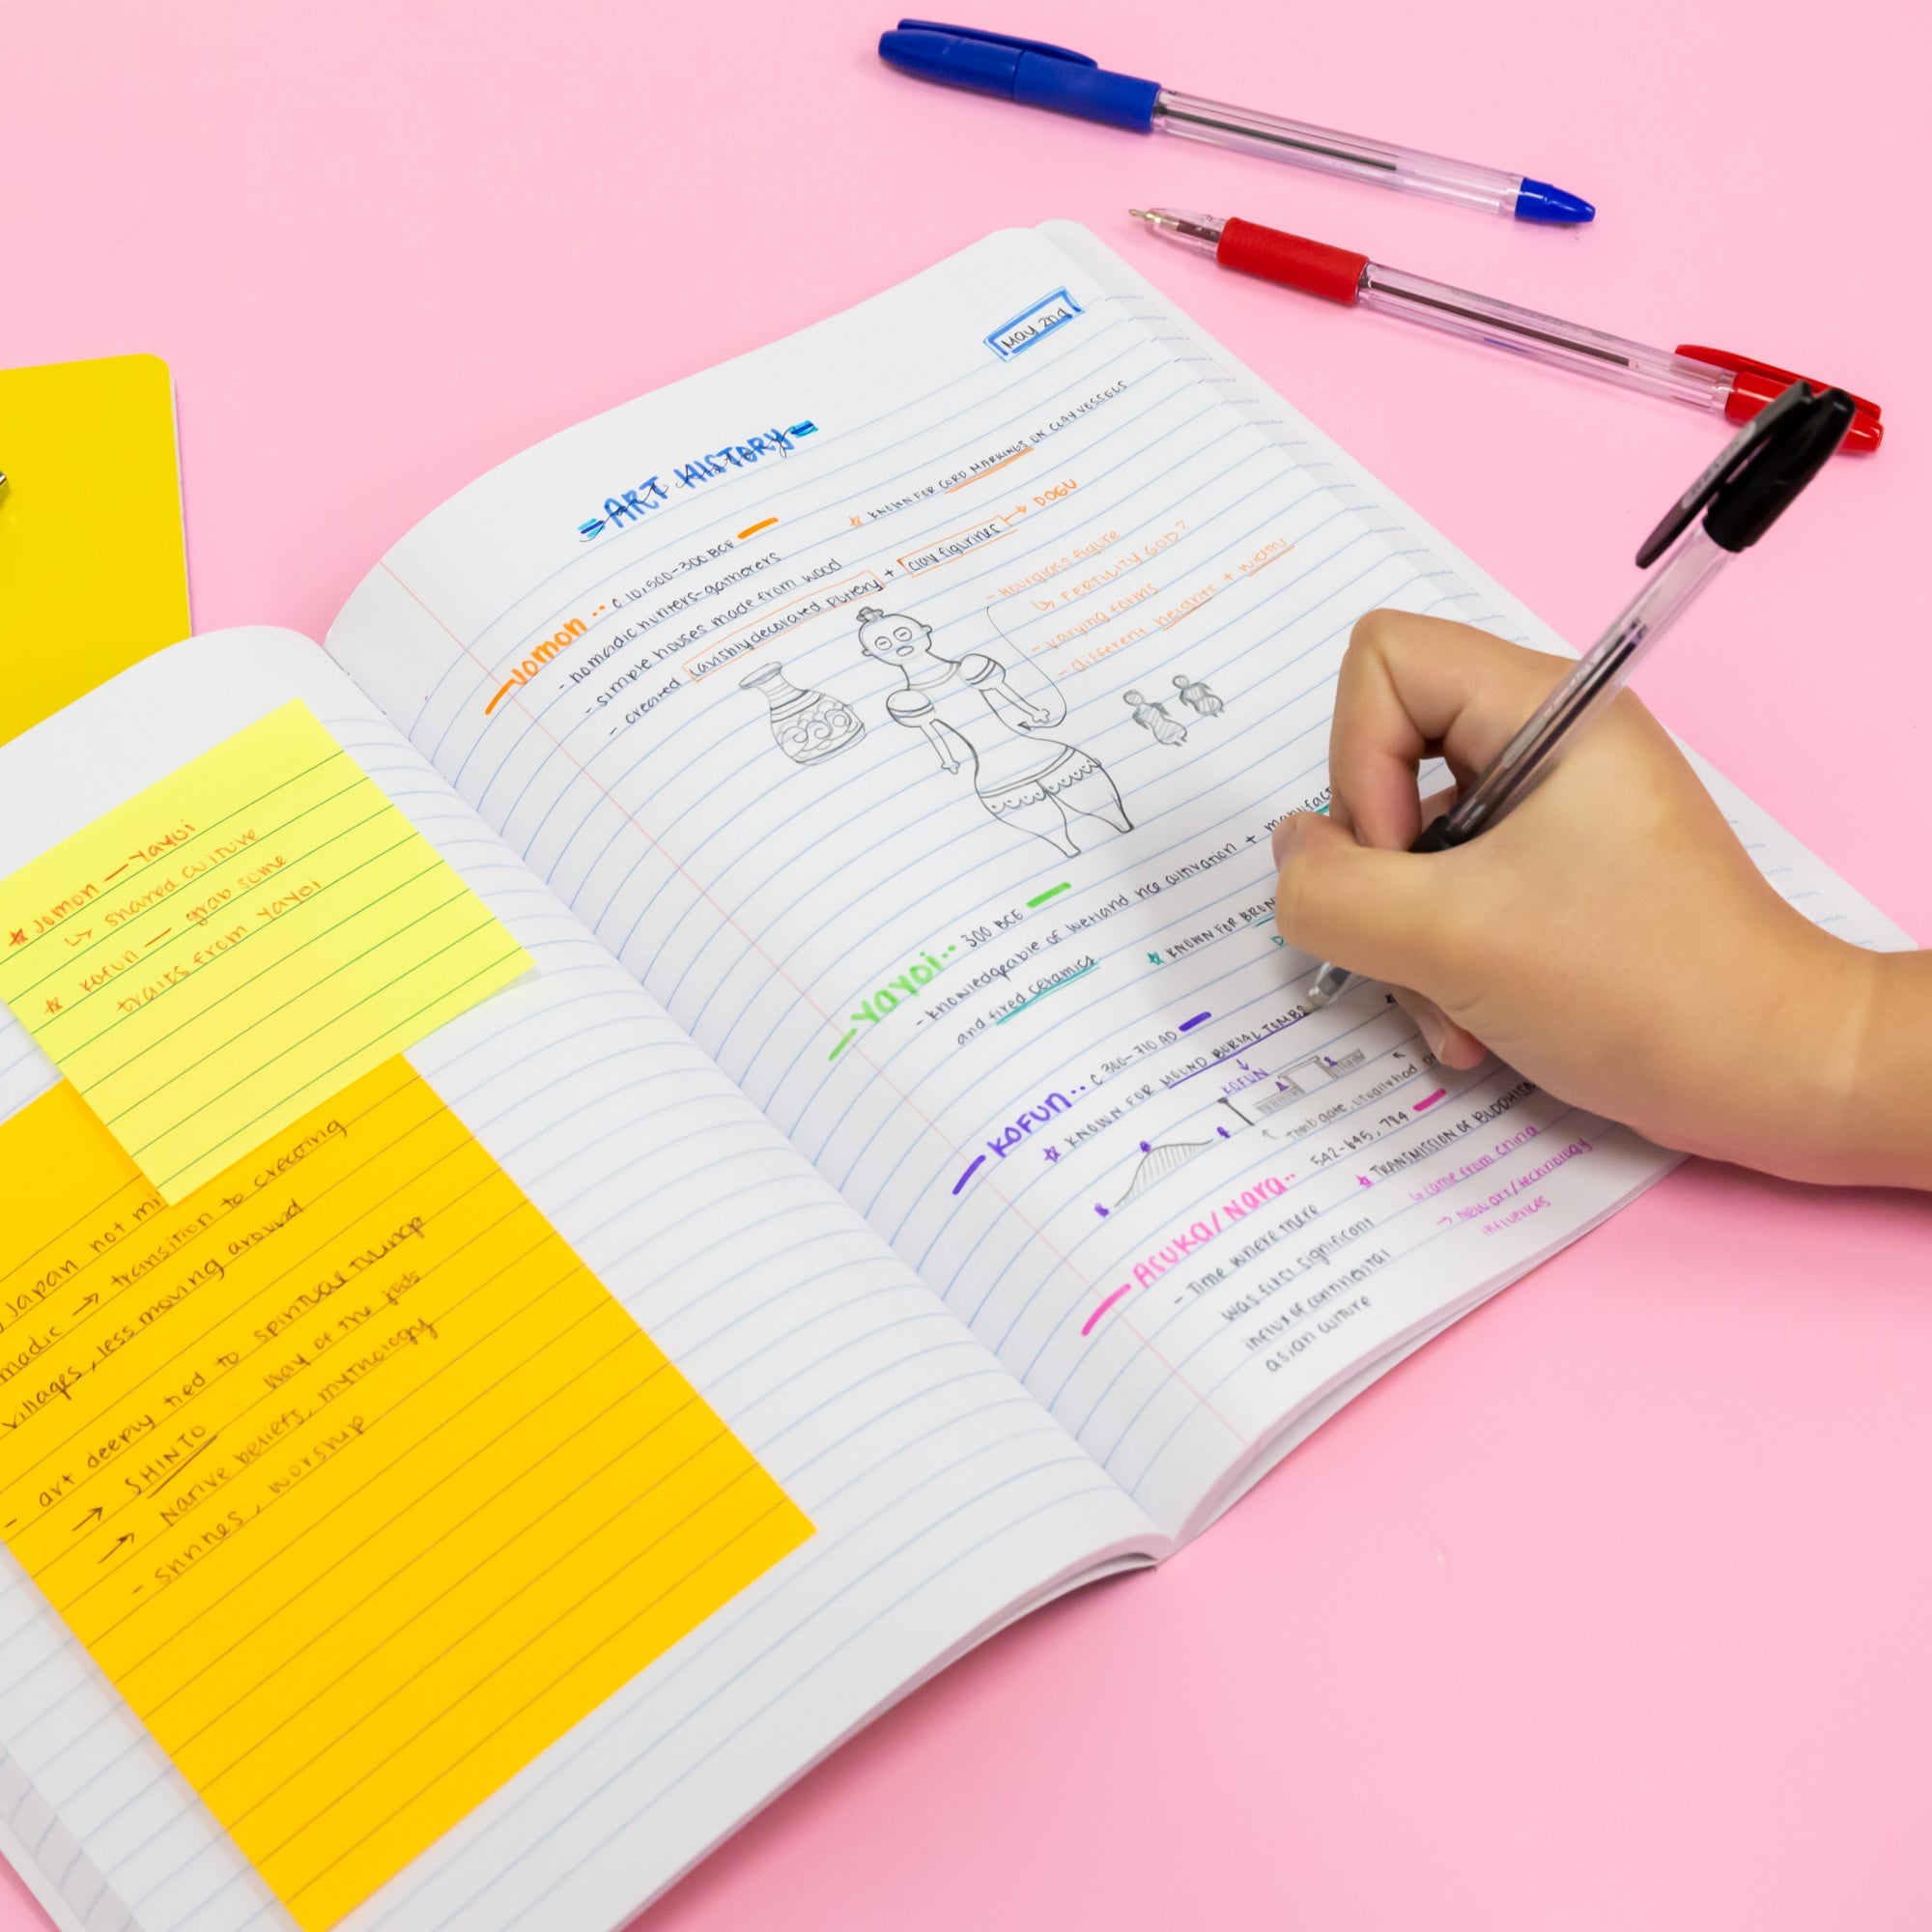 * Jomon — Yayoi
↳ shared culture
* Kofun — grab some
traits from Yayoi
Japan not mi
madic → transition to creating
villages, less moving around
- art deeply tied to spiritual things
→ SHINTO way of the gods
→ Native beliefs, mythology
- shrines, worship
May 2nd
ART HISTORY
Jomon.. c 10,500-300 BCE
* KNOWN FOR CORD MARKINGS ON CLAY VESSELS
- nomadic hunters-gatherers
- simple houses made from wood
- created lavishly decorated pottery + clay figurines → DOGU
- hourglass figure
↳ FERTILITY GOD?
- varying forms
- different heights + widths
Yayoi.. 300 BCE
- knowledgeable of wetland rice cultivation + manufact
and fired ceramics
* KNOWN FOR BRON
KOFUN.. c 300-710 AD
* KNOWN FOR MOUND BURIAL TOMBS
↓
KOFUN
Tomb gate, usually had
Asuka/Nara.. 542-645, 784
- Time where there
was first significant
influx of continental
asian culture
* TRANSMISSION OF BUDDHISM
↳ came from china
→ new art/technology
influences